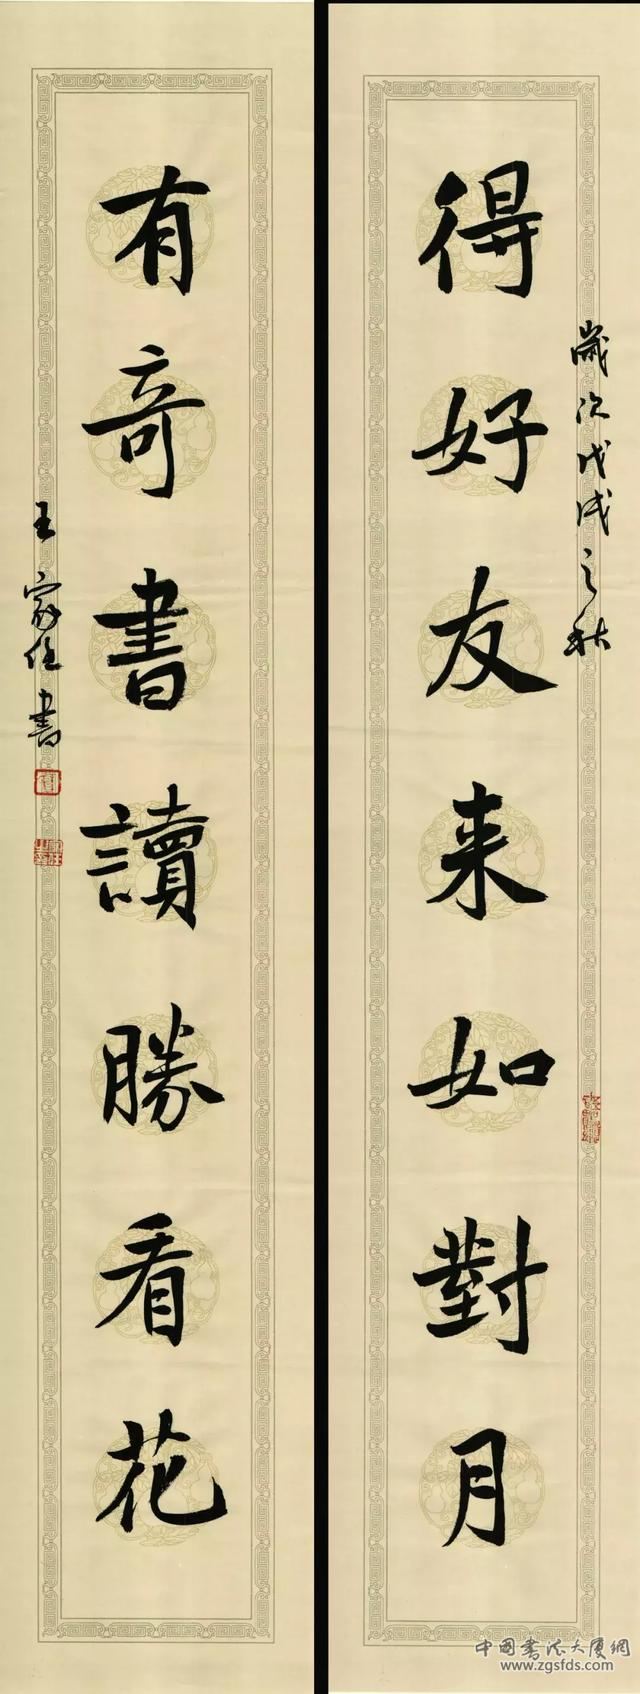 得好友来如對月
歲次戊戌之秋
有奇書讀勝看花
王家佐書
中国书法大厦網
www.zgsfds.com